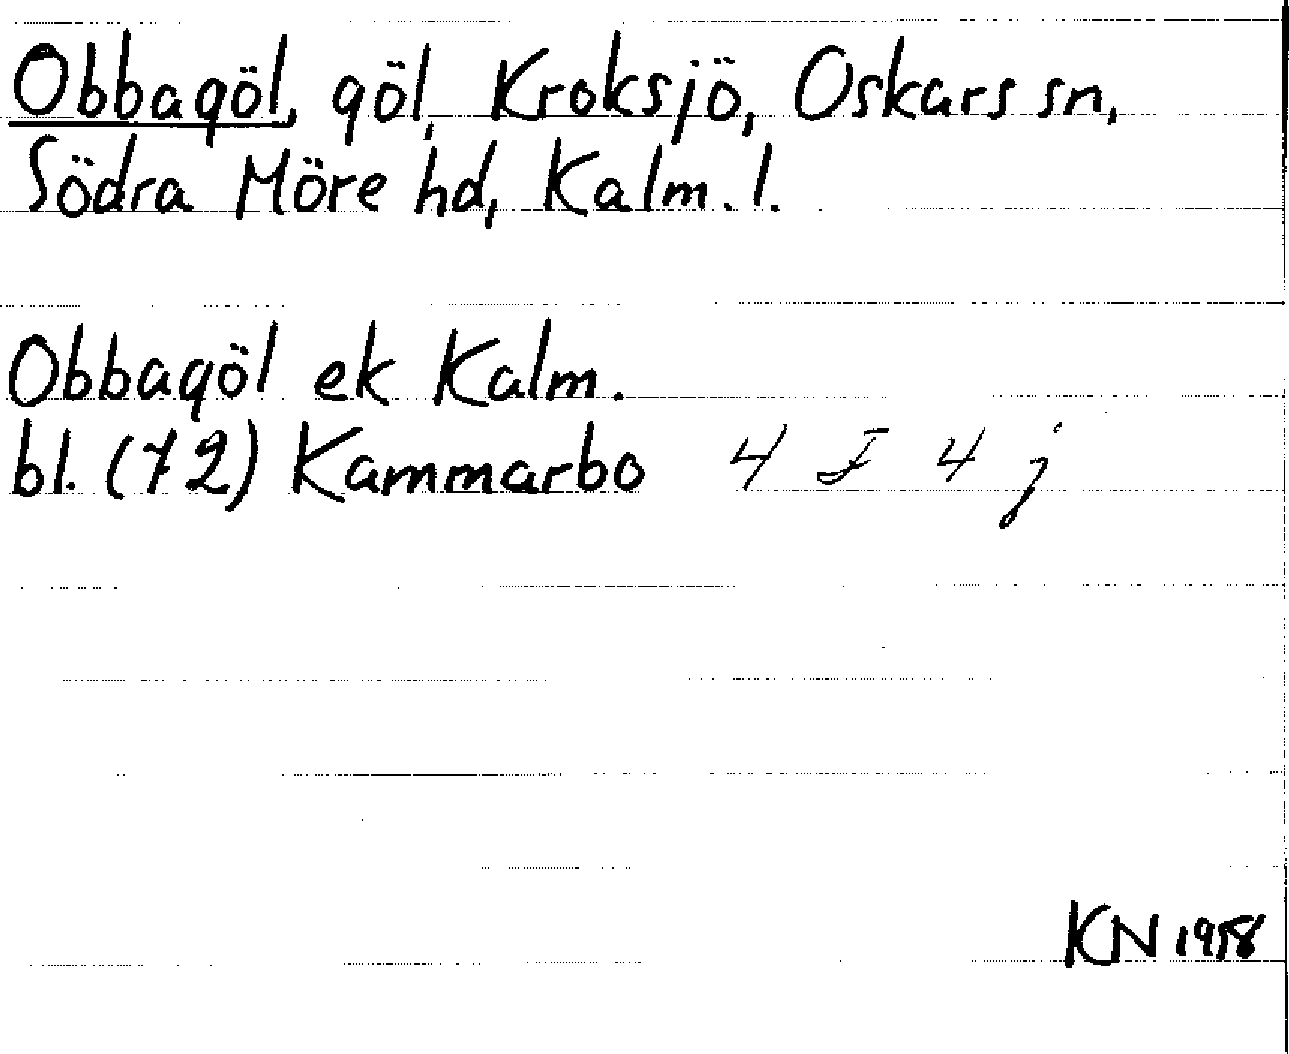 Obbagöl, göl, Kroksjö, Oskars sn,
Södra Möre hd, Kalm. l.
Obbagöl ek Kalm.
bl. (72) Kammarbo 4 F 4 j
KN 1958